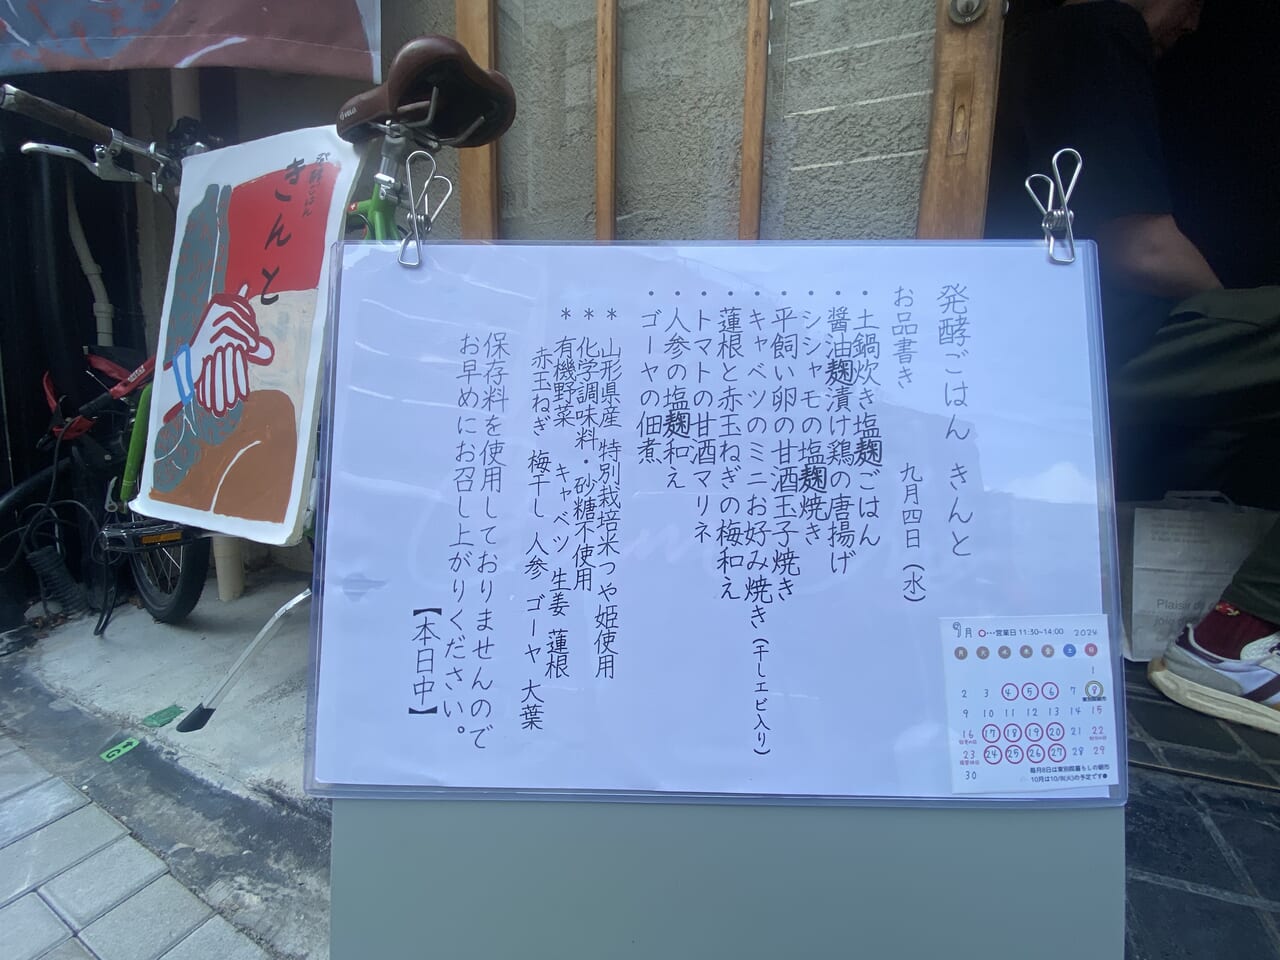 発酵ごはん きんと
お品書き 九月四日(水)
・土鍋炊き塩麹ごはん
・醤油麹漬け鶏の唐揚げ
・シシャモの塩麹焼き
・平飼い卵の甘酒玉子焼き
・キャベツのミニお好み焼き(干しエビ入り)
・蓮根と赤玉ねぎの梅和え
・トマトの甘酒マリネ
・人参の塩麹和え
・ゴーヤの佃煮
*山形県産 特別栽培米つや姫使用
*化学調味料・砂糖不使用
*有機野菜 キャベツ 生姜 蓮根
赤玉ねぎ 梅干し 人参 ゴーヤ 大葉
保存料を使用しておりませんので
お早めにお召し上がりください。
【本日中】
発酵ごはん
きんと
9月 ○…営業日 11:30~14:00 2024
月 火 水 木 金 土 日
1
2 3 4 5 6 7 8
9 10 11 12 13 14 15
16 17 18 19 20 21 22
23 24 25 26 27 28 29
30
毎月8日は東別院暮らしの朝市
10月は10/8(火)の予定です
VELO
G
Plaisir de